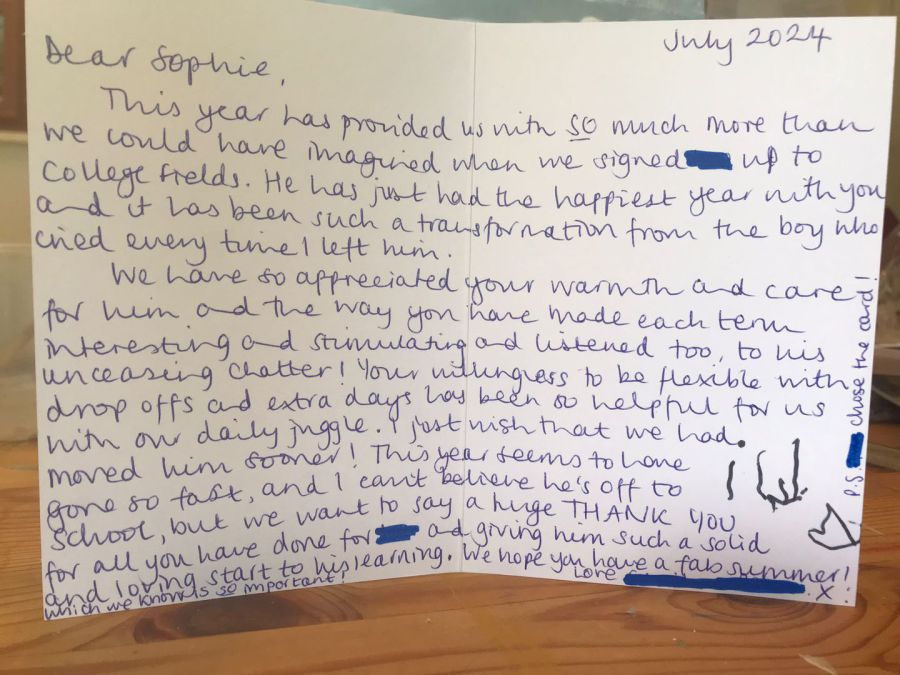 July 2024
Dear Sophie,
This year has provided us with SO much more than
we could have imagined when we signed up to
College Fields. He has just had the happiest year with you
and it has been such a transformation from the boy who
cried every time I left him.
We have so appreciated your warmth and care
for him and the way you have made each term
interesting and stimulating and listened too, to his
unceasing chatter! Your willingness to be flexible with
drop offs and extra days has been so helpful for us
with our daily juggle. I just wish that we had
moved him sooner! This year seems to have
gone so fast, and I can't believe he's off to
school, but we want to say a huge THANK YOU
for all you have done for and giving him such a solid
and loving start to his learning. We hope you have a fab summer!
which we know is so important!
Love
x
P.S. chose the card!